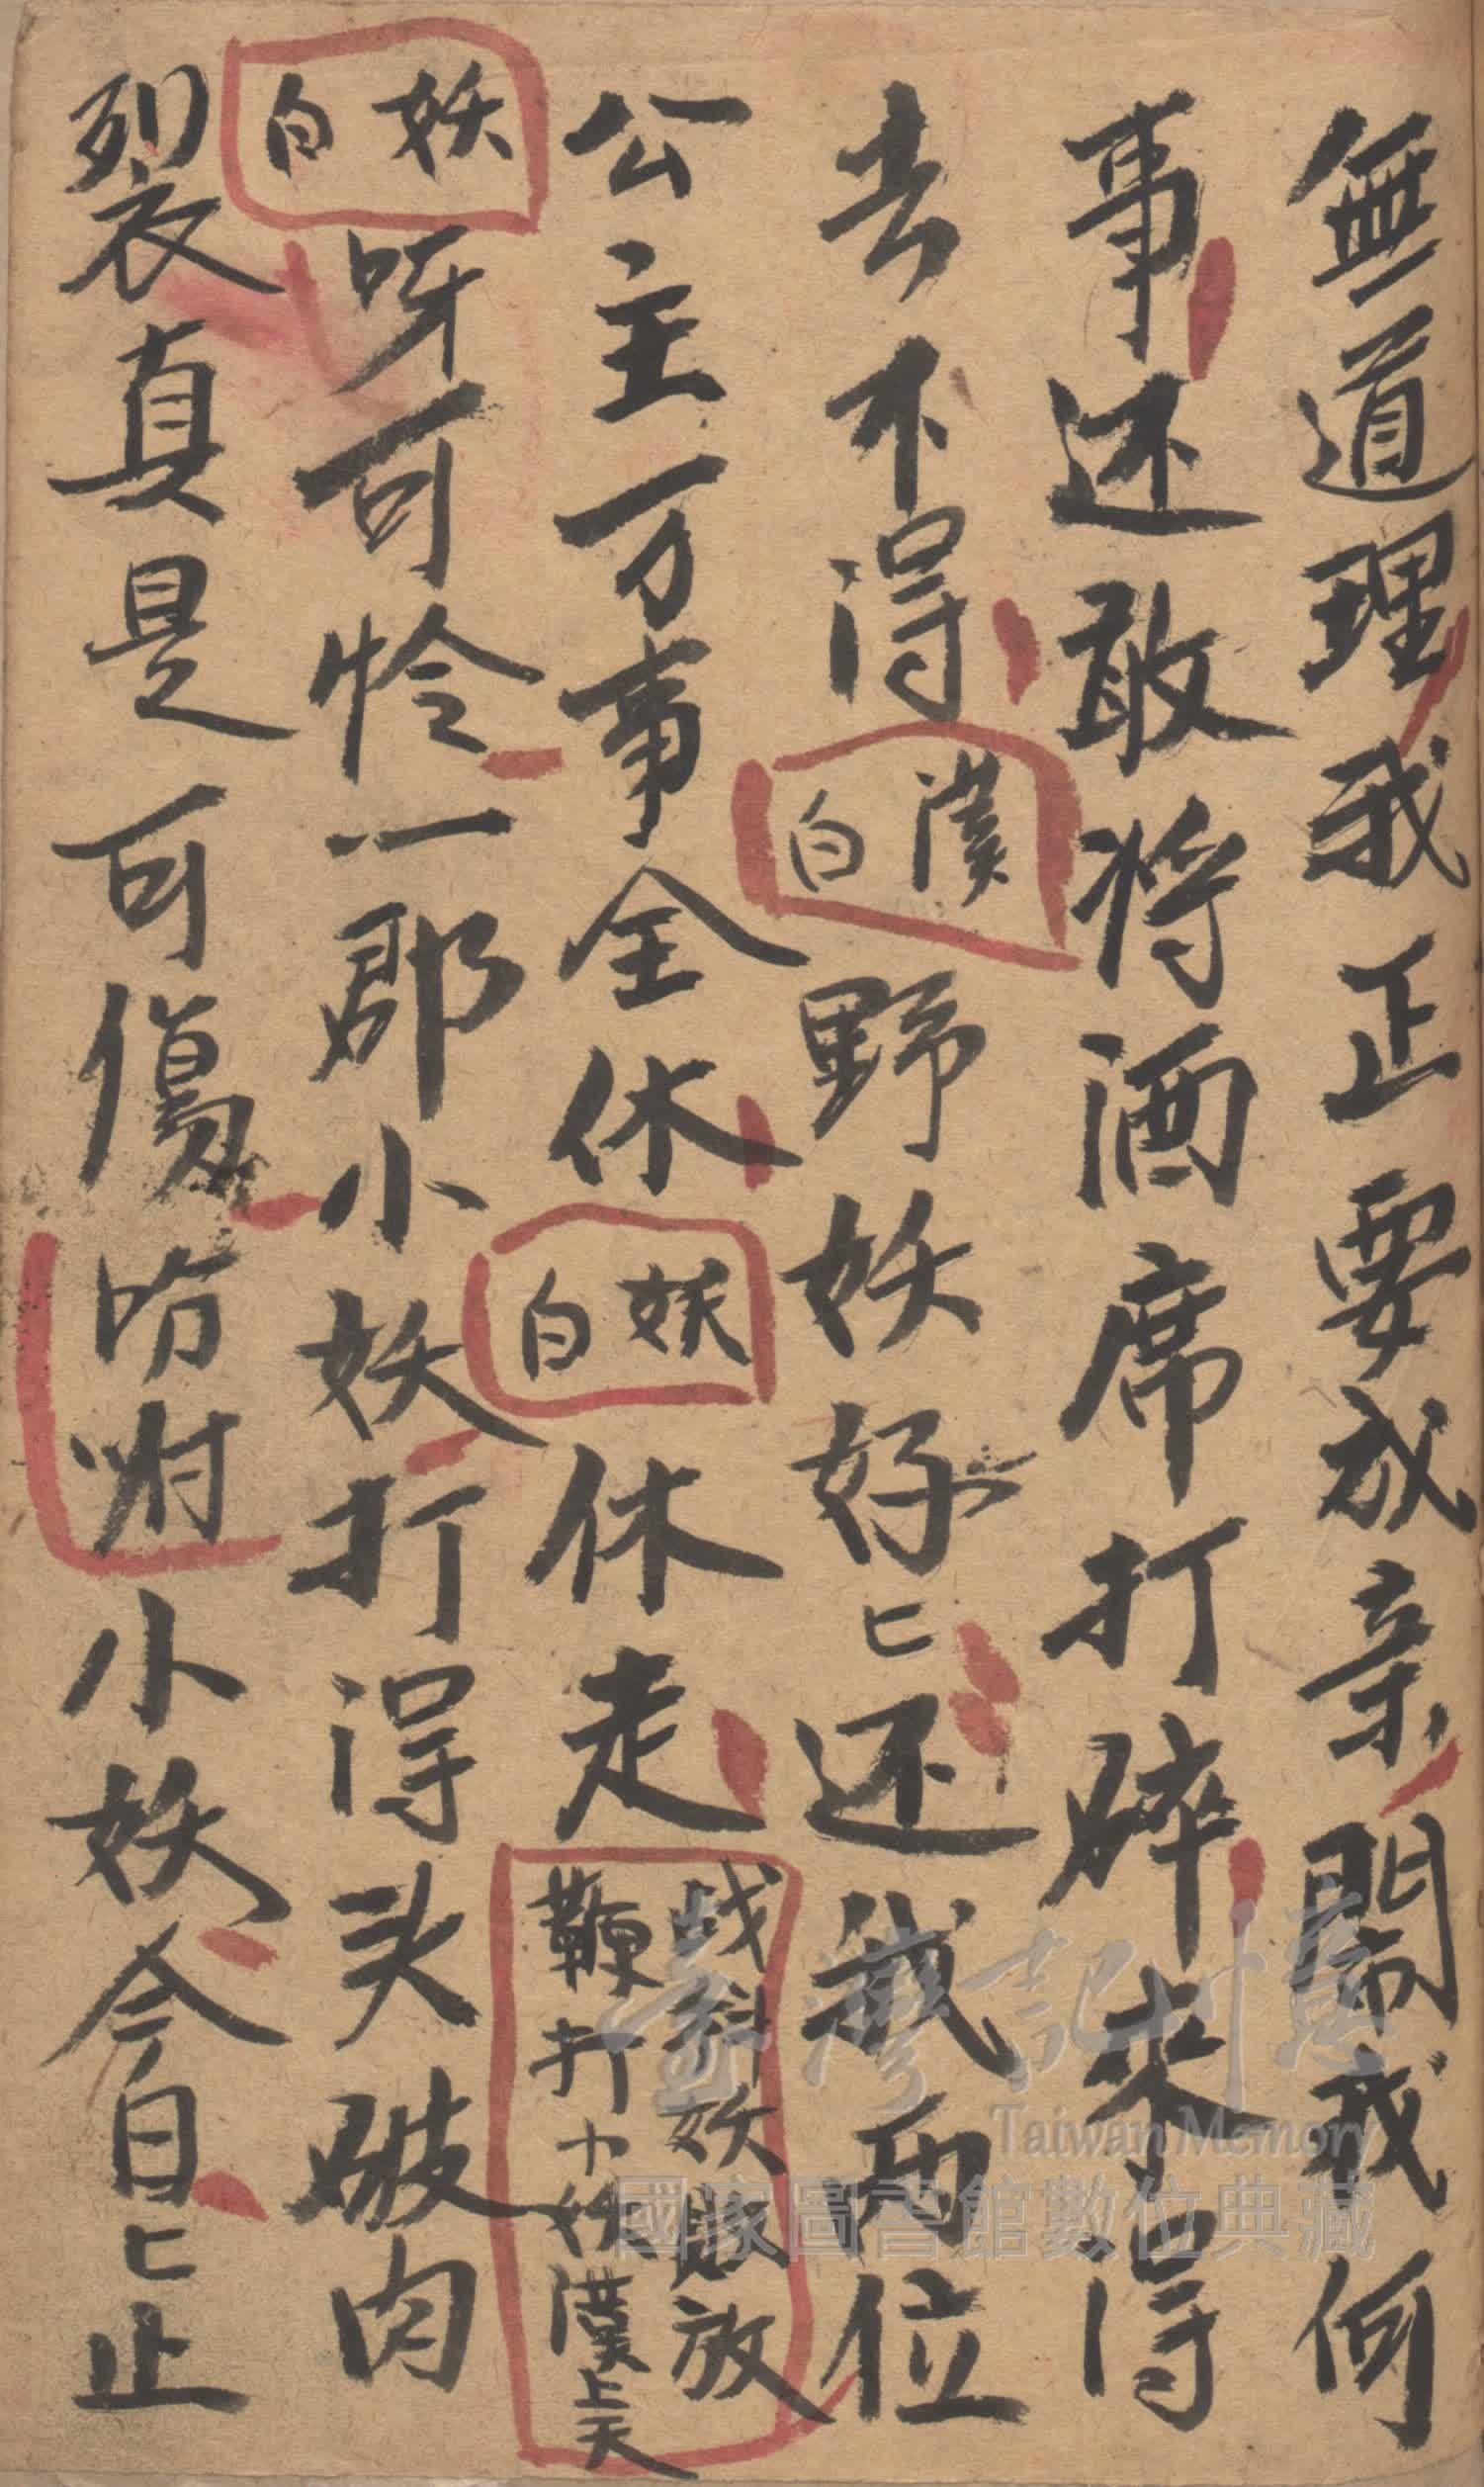 無道理我正要成亲鬧我何
事还敢将酒席打碎來得
去不得
漢白
野妖好〻还我両位
公主万事全休
妖白
休走
战科妖敗放
鞭打小妖漢上天
妖白
呀可怜一郡小妖打得头破肉
裂真是可傷吩咐小妖今日〻止
臺灣記憶
Taiwan Memory
國家圖書館數位典藏